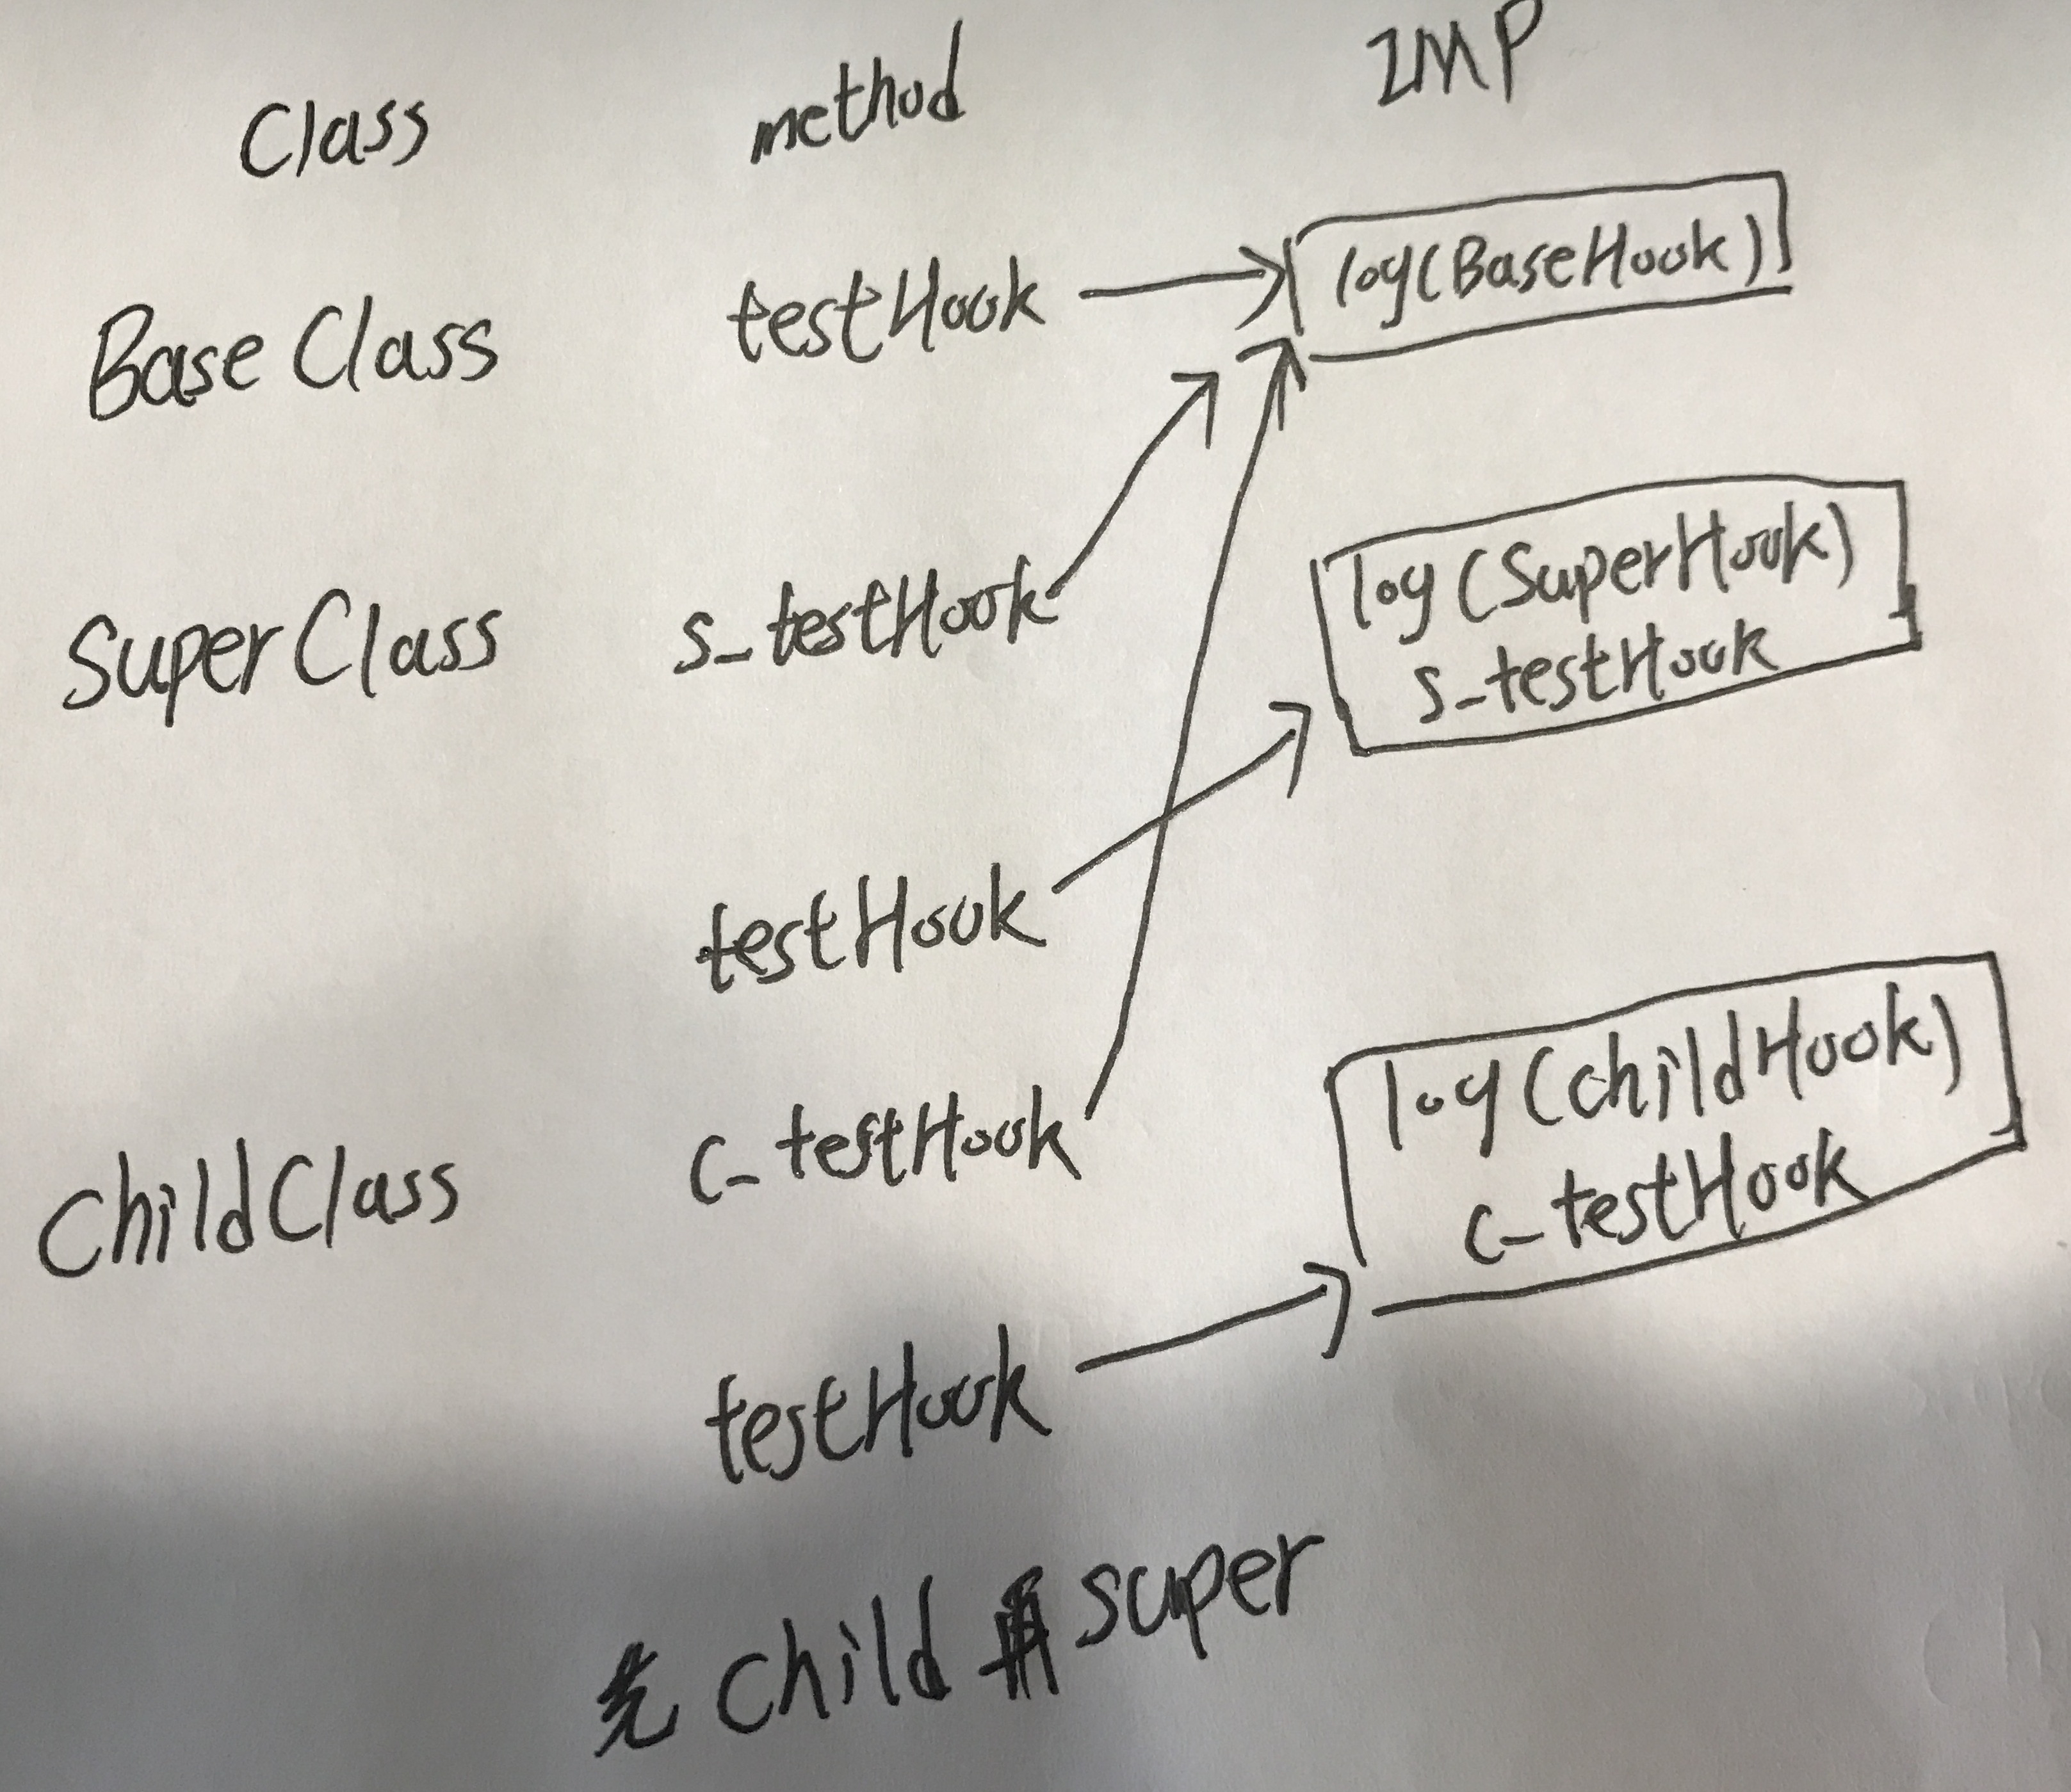 Class method IMP
BaseClass testHook log(BaseHook)
SuperClass s_testHook log(SuperHook)
s_testHook
testHook
ChildClass c_testHook log(childHook)
c_testHook
testHook
先 child 再 super